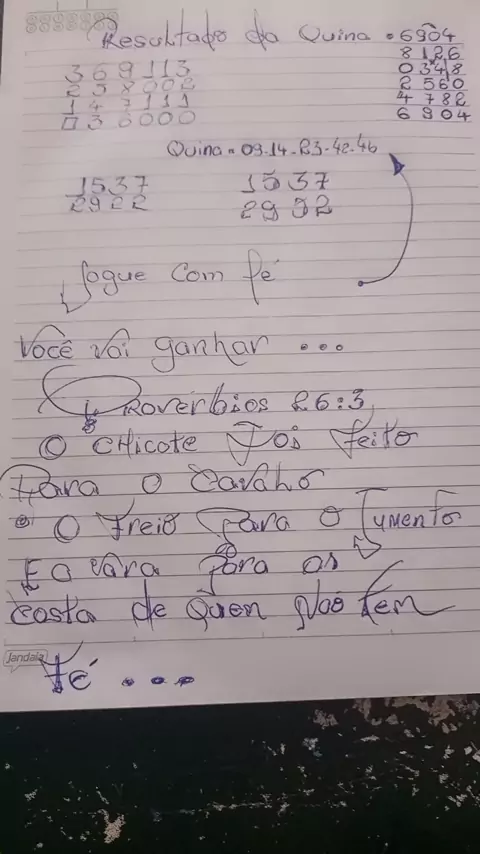 Resultado da Quina = 6904
8126
0348
2560
4782
6904
369113
258002
147111
036000
Quina = 09-14-23-42-46
1537
2922
1537
2992
Jogue com fé
Você vai ganhar ...
Provérbios 26:3
O CHicote Foi Feito
Para o Cavalo
o Freio Para o Jumento
E a vara para as
Costa de Quen Não tem
Fé ...
Jandaia